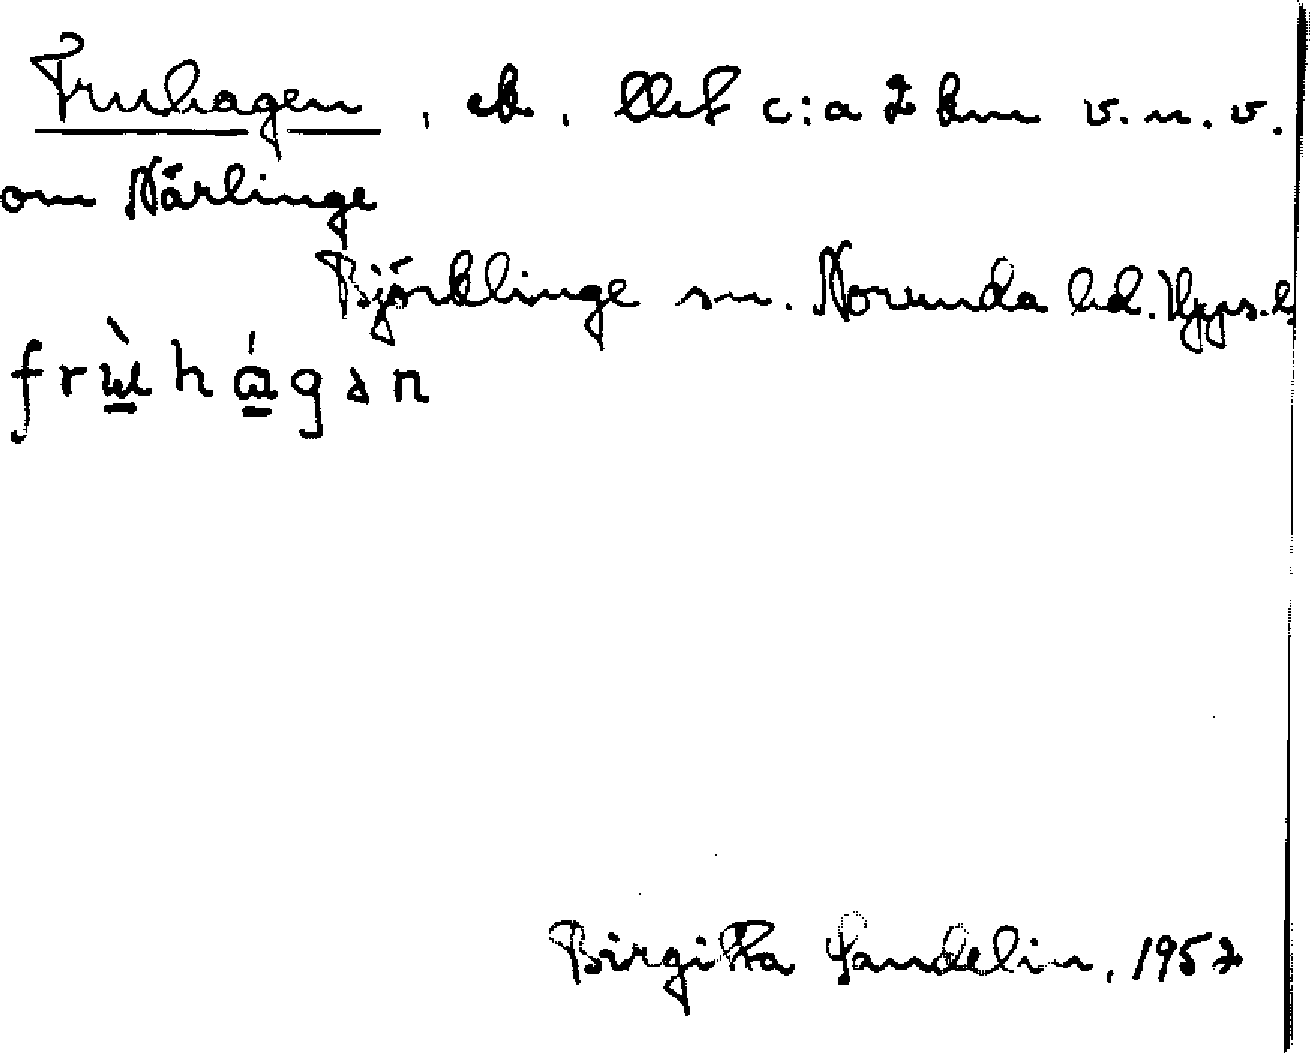 Fruhagen, ek. Utf c:a 2 km v.n.v.
om Närlinge
Björklinge sn. Norunda hd. Upps. l
frùhágən
Birgitta Sandelin, 1952